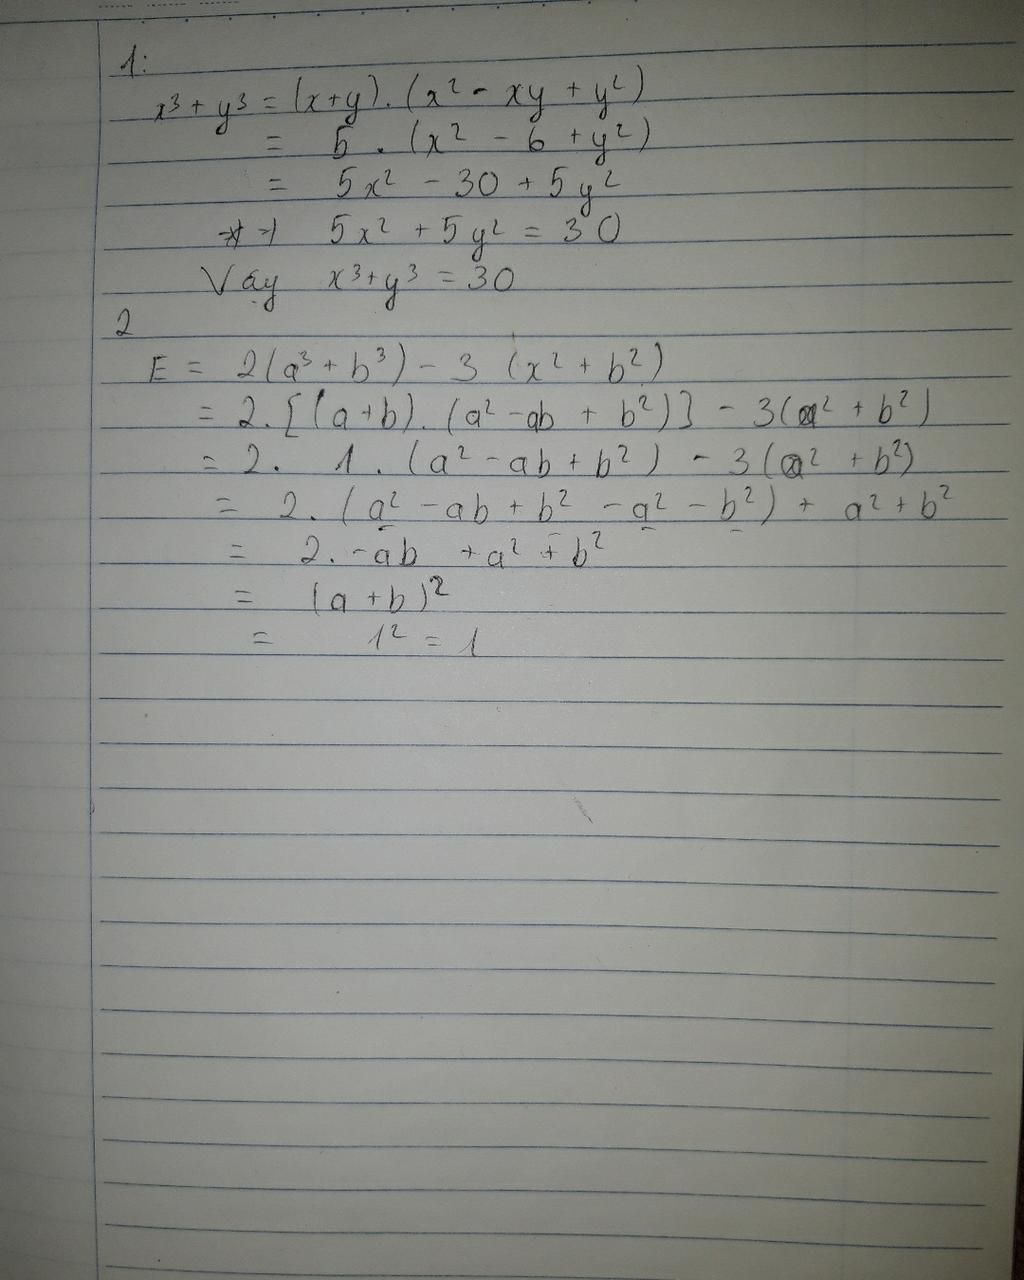 1:
x³ + y³ = (x+y). (x² - xy + y²)
= 5 . (x² - 6 + y²)
= 5x² - 30 + 5y²
=> 5x² + 5y² = 30
Vậy x³+y³ = 30
2
E = 2(a³ + b³) - 3 (x² + b²)
= 2. [(a+b). (a² -ab + b²)] - 3(a² + b²)
= 2. 1. (a² -ab + b²) - 3(a² + b²)
= 2. (a² -ab + b² - a² - b²) + a² + b²
= 2. -ab + a² + b²
= (a + b)²
= 1² = 1